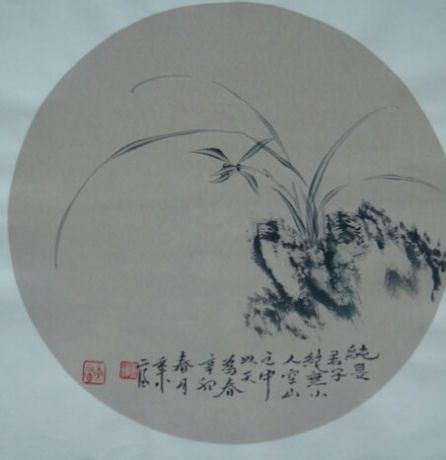 純是
君子
絕無小
人空山
之中
以天
為春
辛卯
春月